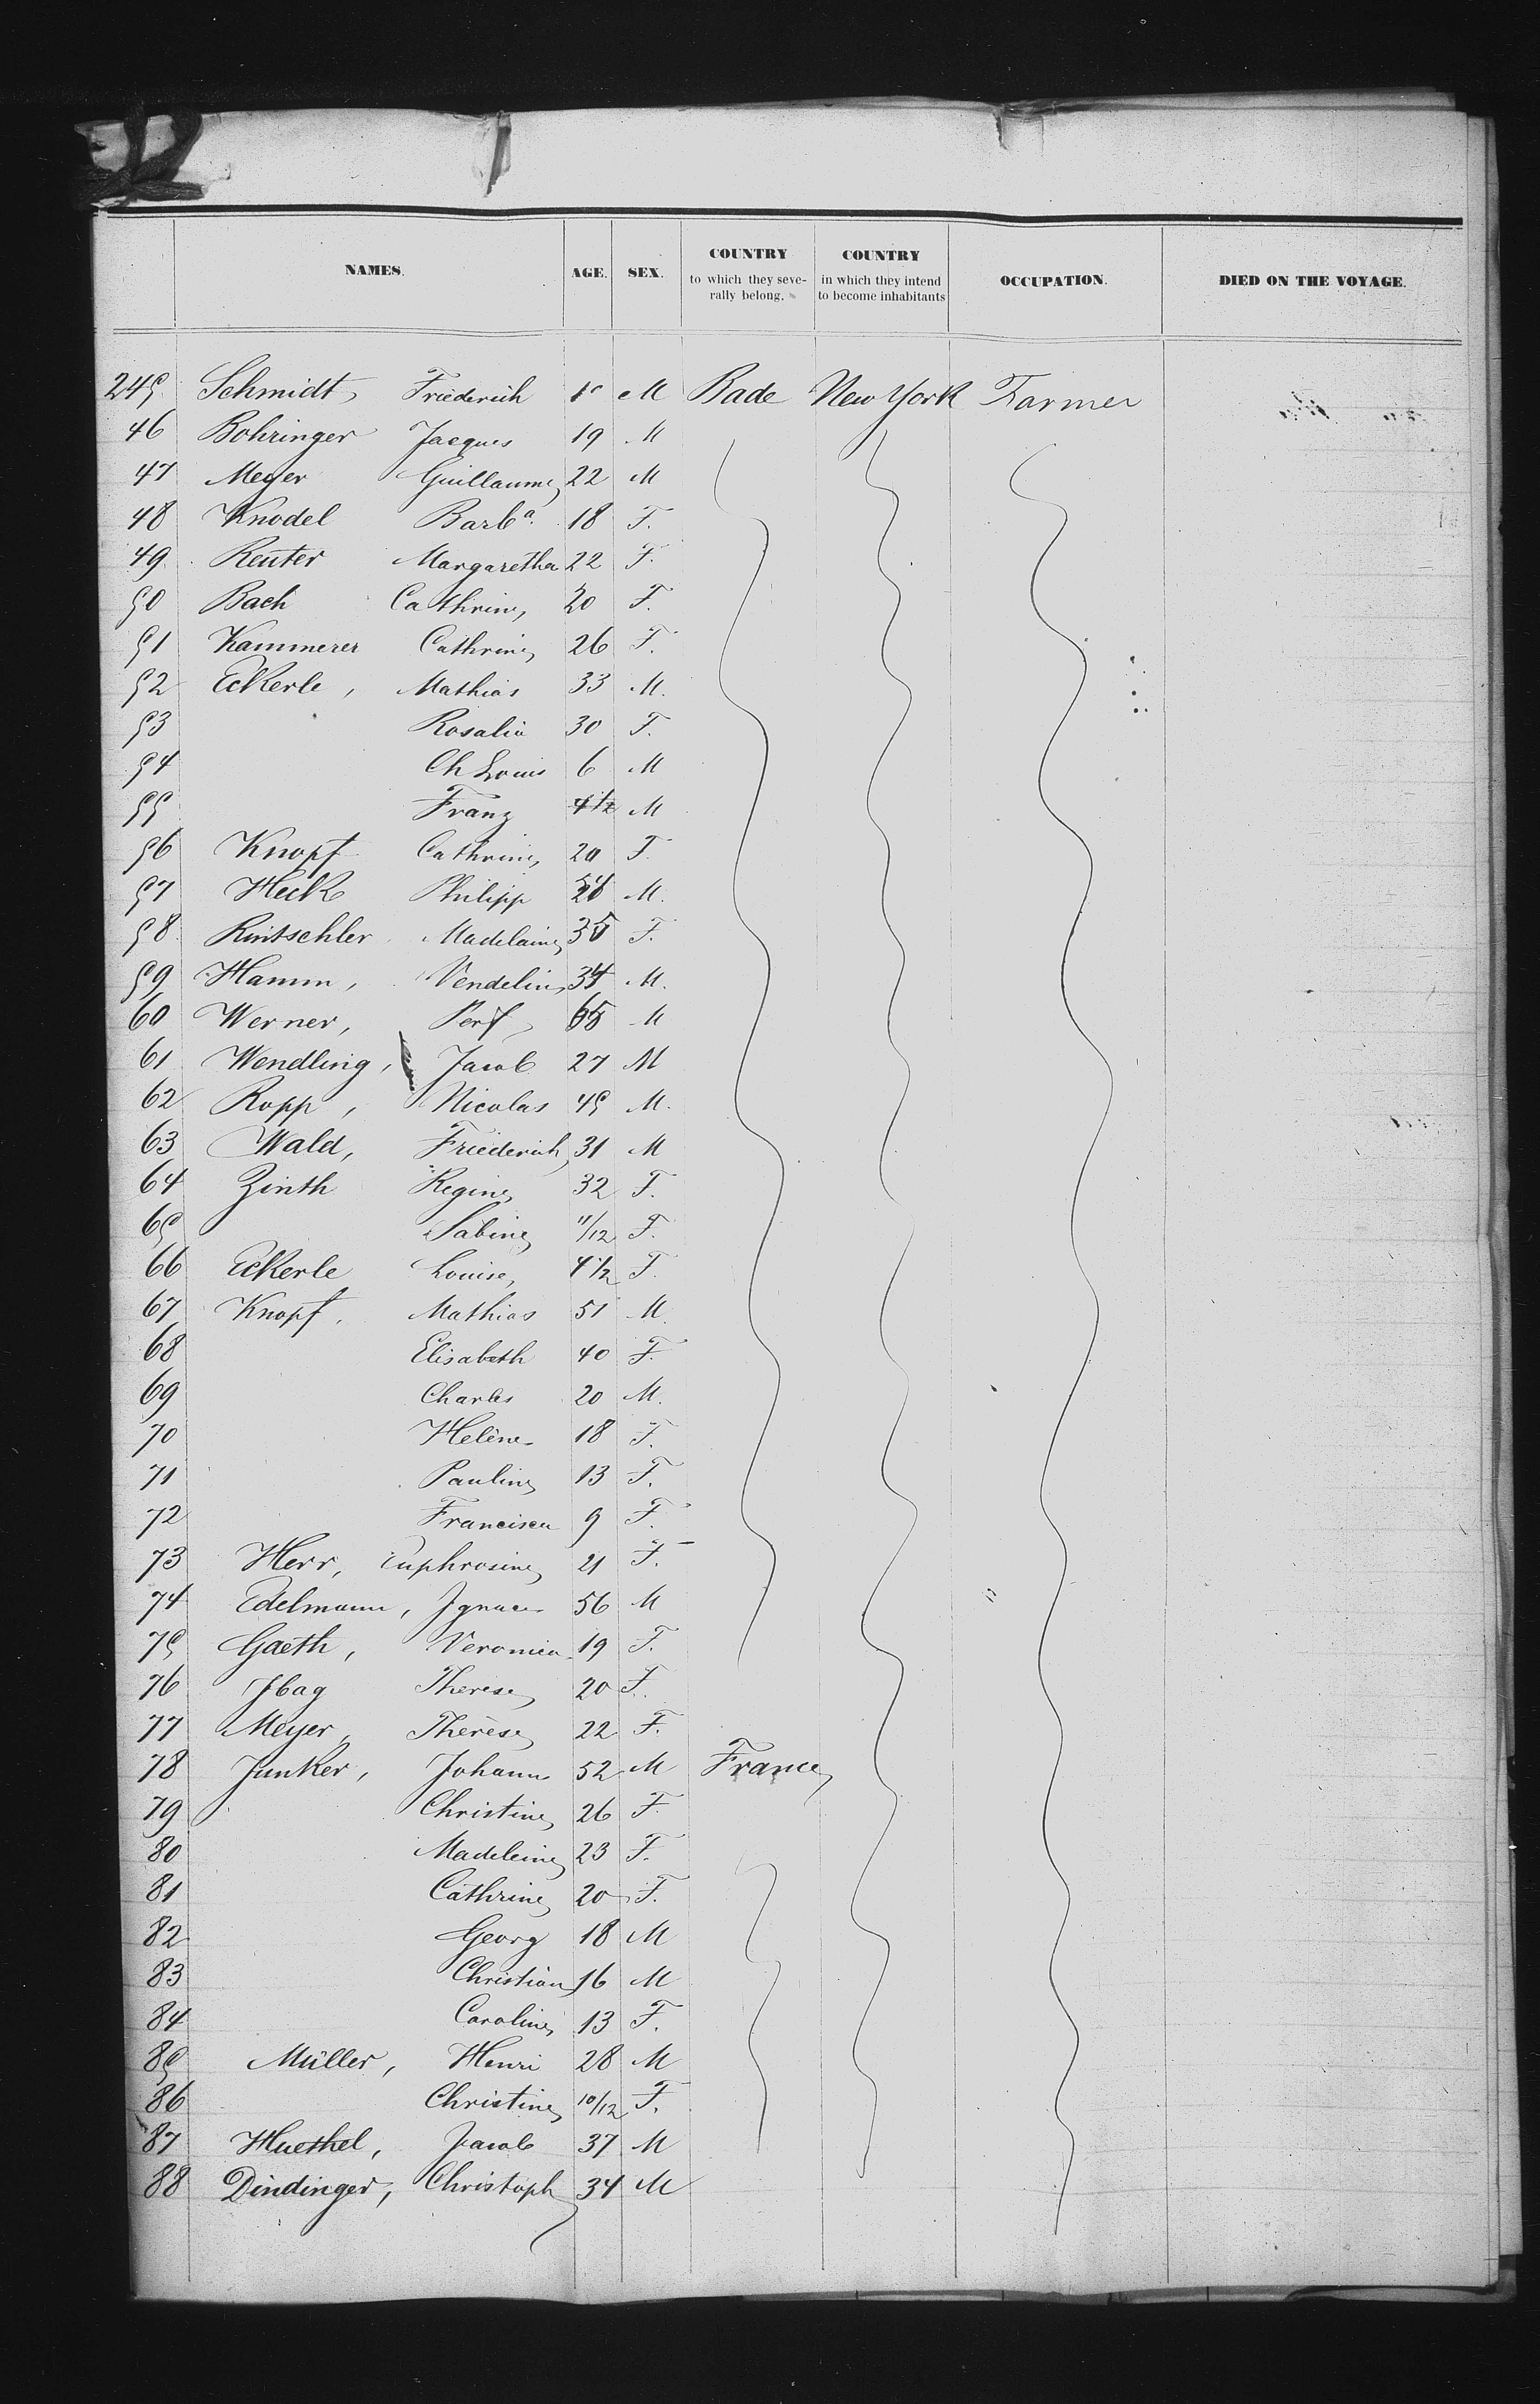 NAMES. AGE. SEX. COUNTRY to which they severally belong. COUNTRY in which they intend to become inhabitants OCCUPATION. DIED ON THE VOYAGE.
245 Schmidt, Friederich M Bade New York Farmer
46 Bohringer Jacques 19 M
47 Meyer Guillaume 22 M
48 Knodel Barbª. 18 F.
49 Reuter Margaretha 22 F.
50 Bach Cathrine 20 F.
51 Kammerer Cathrine 26 F.
52 Eckerle, Mathias 33 M.
53 Rosalia 30 F.
54 Ch Louis 6 M
55 Franz 4 1/2 M
56 Knopf Cathrine 20 F.
57 Heck Philipp M.
58 Rintschler Madelaine 35 F.
59 Hamm, Vendelin 34 M.
60 Werner, M
61 Wendling, Jacob 27 M
62 Ropp, Nicolas 45 M.
63 Wald, Friederich 31 M
64 Zinth Regine 32 F.
65 Sabine 11/12 F.
66 Eckerle Louise, 4 1/2 F.
67 Knopf, Mathias 51 M.
68 Elisabeth 40 F.
69 Charles 20 M.
70 Helène 18 F.
71 Pauline 13 F.
72 Francisca 9 F.
73 Herr, Euphrosine 21 F.
74 Edelmann, Ignace 56 M
75 Gaeth, Veronica 19 F.
76 Ibag Therese 20 F.
77 Meyer, Thérèse 22 F.
78 Junker, Johann 52 M France
79 Christine 26 F
80 Madeleine 23 F.
81 Cathrine 20 F.
82 Georg 18 M
83 Christian 16 M
84 Caroline 13 F.
85 Müller, Henri 28 M
86 Christine 10/12 F.
87 Huethel, Jacob 37 M
88 Dindinger, Christoph 34 M